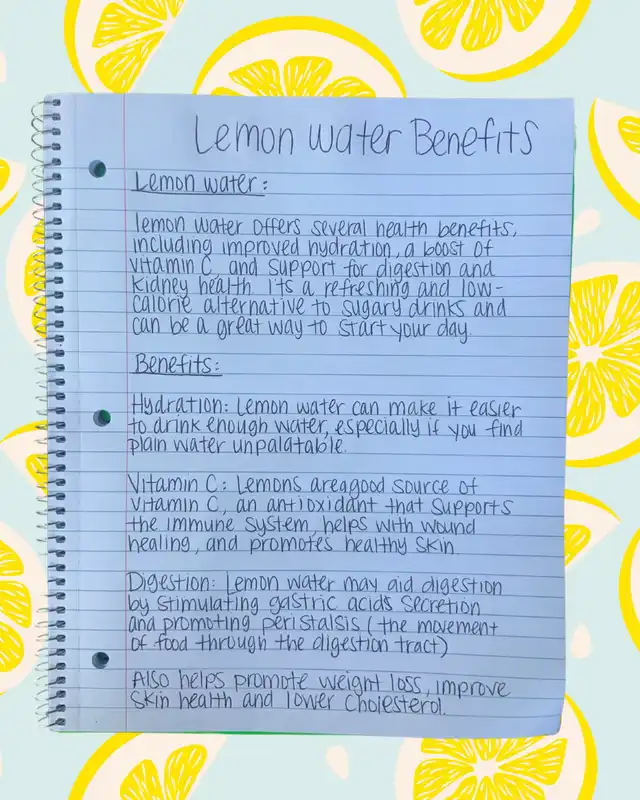 Lemon water Benefits
Lemon water:
lemon water offers several health benefits,
including improved hydration, a boost of
vitamin C, and support for digestion and
kidney health. Its a refreshing and low-
calorie alternative to sugary drinks and
can be a great way to start your day.
Benefits:
Hydration: Lemon water can make it easier
to drink enough water, especially if you find
plain water unpalatable.
Vitamin C: Lemons are a good source of
vitamin C, an antioxidant that supports
the immune system, helps with wound
healing, and promotes healthy skin.
Digestion: Lemon water may aid digestion
by stimulating gastric acids secretion
and promoting peristalsis (the movement
of food through the digestion tract)
Also helps promote weight loss, improve
skin health and lower cholesterol.